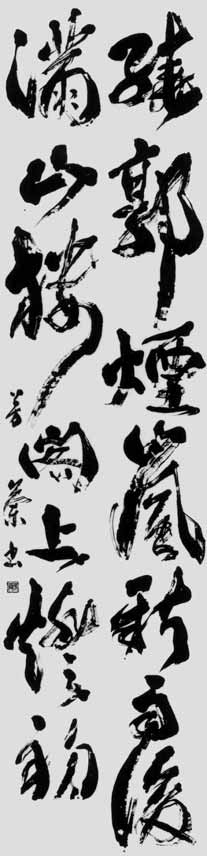 繞郭煙嵐新雨後
滿山樓閣上燈初